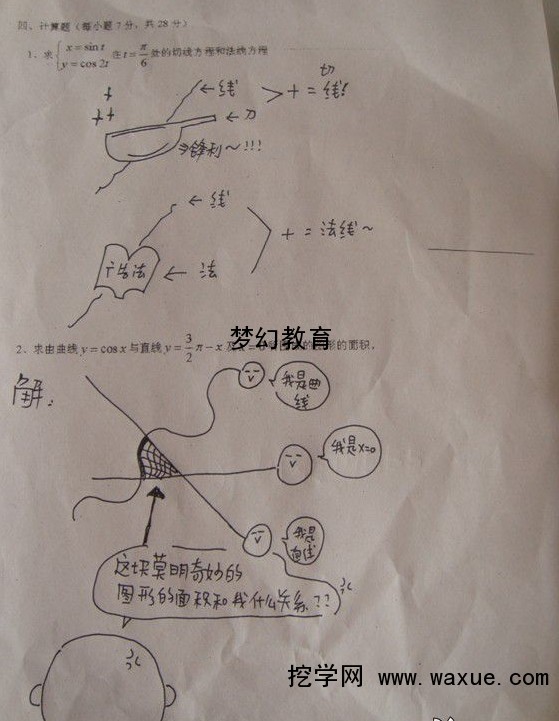 四、计算题（每小题 7 分，共 28 分）
1、求 { x = sin t
y = cos 2t 在 t = π/6 处的切线方程和法线方程
+
++
←线
> + = 切线!
← 刀
⇒锋利~!!!
← 线
+ = 法线~
广告法 ← 法
2、求由曲线 y = cos x 与直线 y = 3/2 π - x 及
的面积.
梦幻教育
解:
我是曲线
我是x=0
我是直线
这块莫明奇妙的
图形的面积和我什么关系??
挖学网 www.waxue.com